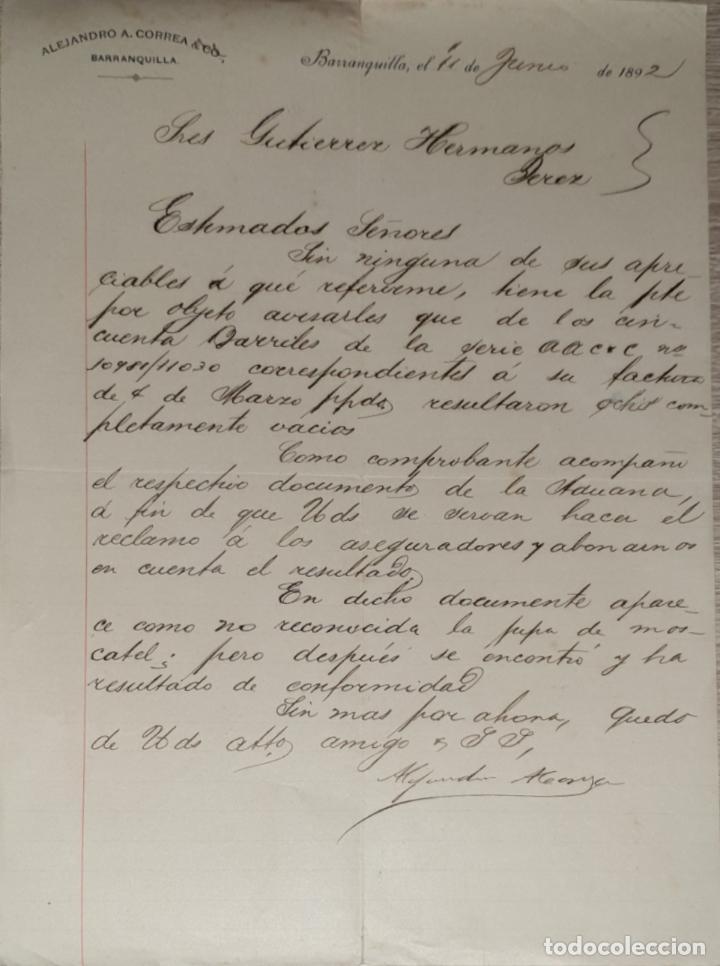 ALEJANDRO A. CORREA & CO.
BARRANQUILLA.
Barranquilla, el 11 de Junio de 1892
Sres Gutierrez Hermanos
Jerez
Estimados Señores
Sin ninguna de sus apre-
ciables á qué referirme, tiene la pte
por objeto avisarles que de los cin-
cuenta Barriles de la serie AAC&C nº
10981/11030 correspondientes á su factura
de 4 de Marzo ppdo, resultaron ocho com-
pletamente vacios
Como comprobante acompaño
el respectivo documento de la Aduana,
á fin de que Uds se sirvan hacer el
reclamo á los aseguradores y abonarnos
en cuenta el resultado.
En dicho documento apare-
ce como no reconocida la pipa de mos-
catel; pero después se encontró y ha
resultado de conformidad
Sin mas por ahora, quedo
de Uds atto amigo & S S,
Alejandro A Correa
todocoleccion